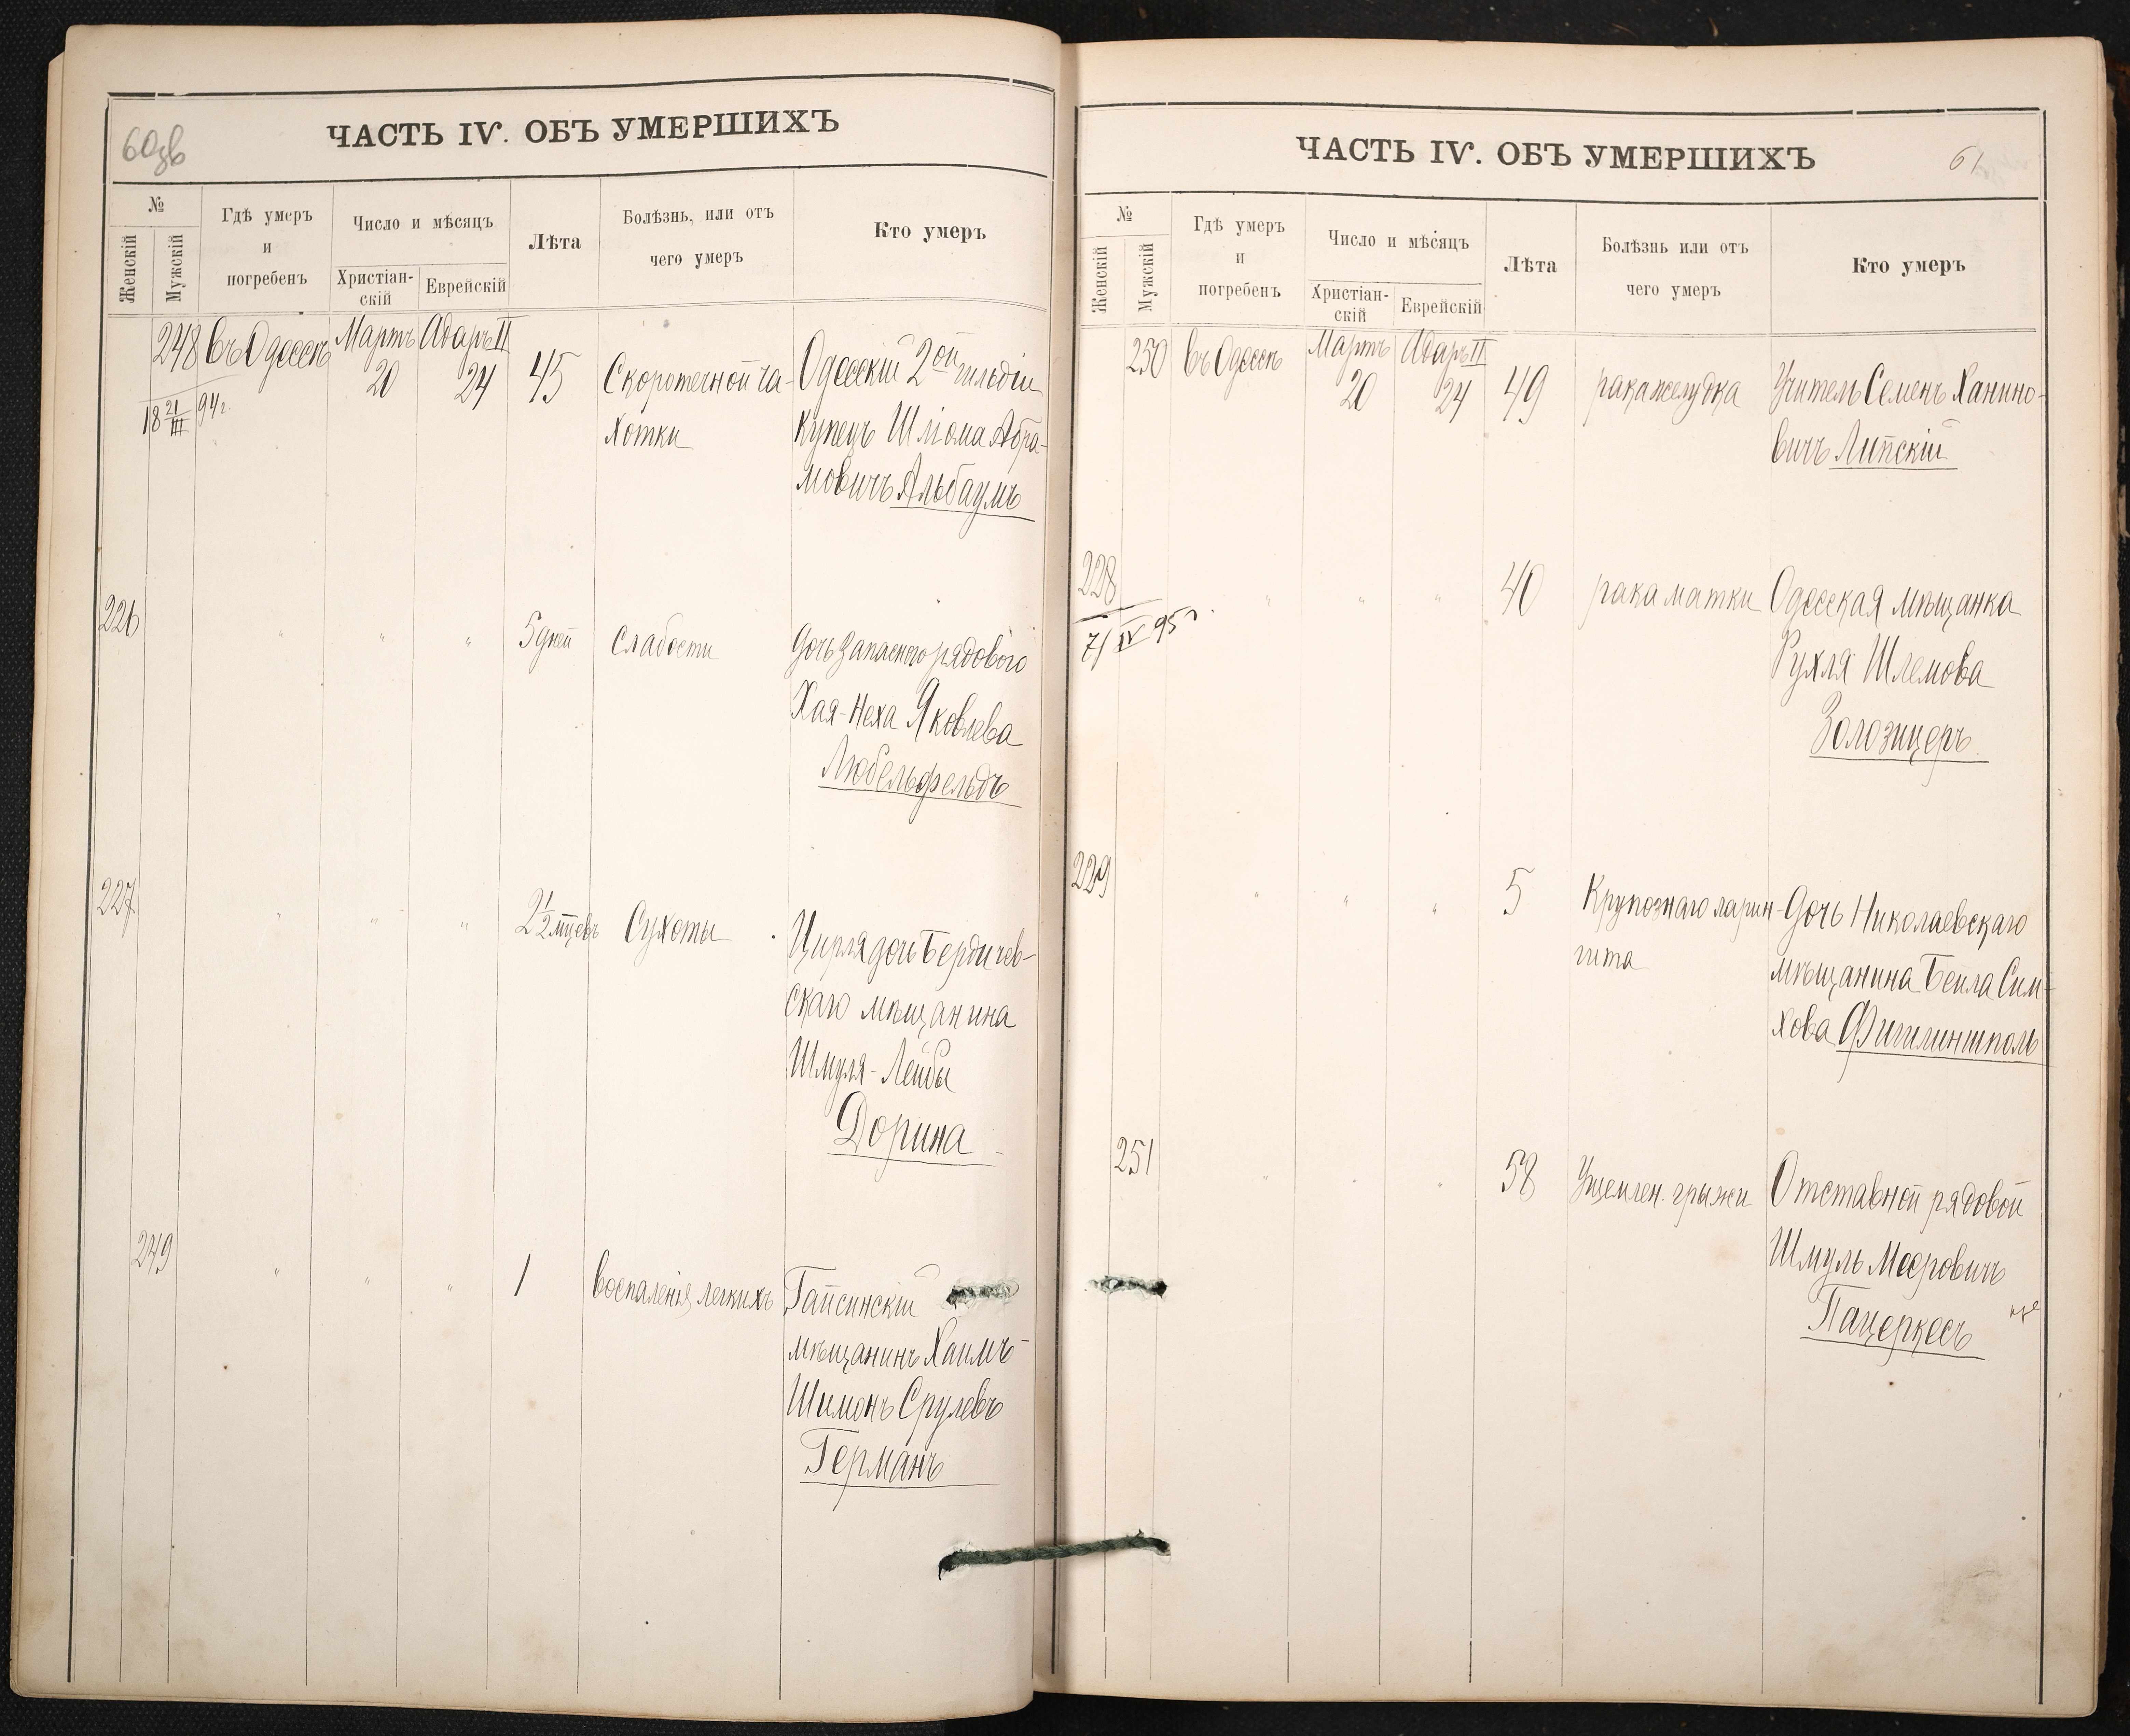 60зв
ЧАСТЬ IV. ОБЪ УМЕРШИХЪ
№
Женскій
Мужскій
Гдѣ умеръ
и
погребенъ
Число и мѣсяцъ
Христіан-
скій
Еврейскій
Лѣта
Болѣзнь, или отъ
чего умеръ
Кто умеръ
248 въ Одессѣ Мартъ 20 Адаръ II 24 45 Скоротечной ча- Одесскій 2ой гильдіи
18 21/III 94 г.
хотки купецъ Шлiома Абра-
мовичъ Альбаумъ
226 " " " 5 дней Слабости Дочь запаснаго рядового
Хая-Неха Яковлева
Любельфельдъ
227 " " " 2 1/2 мцевъ Сухоты Цирля дочь Бердичев-
скаго мѣщанина
Шмуля-Лейбы
Дорина
249 " " " 1 воспаленія легкихъ Гайсинскій
мѣщанинъ Хаимъ-
Шимонъ Срулевъ
Германъ
61
ЧАСТЬ IV. ОБЪ УМЕРШИХЪ
№
Женскій
Мужскій
Гдѣ умеръ
и
погребенъ
Число и мѣсяцъ
Христіан-
скій
Еврейскій
Лѣта
Болѣзнь или отъ
чего умеръ
Кто умеръ
250 въ Одессѣ Мартъ 20 Адаръ II 24 49 рака желудка Учитель Семенъ Ханино-
вичъ Липскій
228 " " " 40 рака матки Одесская мѣщанка
7/IV 95 г.
Рухля Шлемова
Золозицеръ
229 " " " 5 Крупознаго ларин- Дочь Николаевскаго
гита мѣщанина Бейла Сим-
хова
251 " " " 58 Ущемлен. грыжи Отставной рядовой
Шмуль Мееровичъ
Пацеркесъ